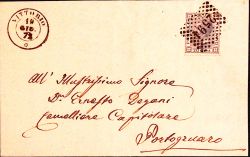 VITTORIO
19
GIU.
73
All' Illustrissimo Signore
Dr. Ernesto Degani
Cancelliere Capitolare
Portogruaro